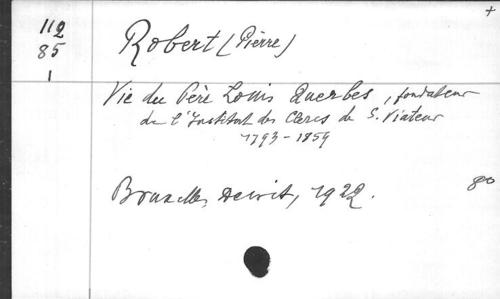 +
112
85
1
Robert (Pierre)
Vie du Père Louis Querbes, fondateur
de l'Institut des Clercs de S. Viateur
1793-1859
Bruxelles, Dewit, 1922.
8o